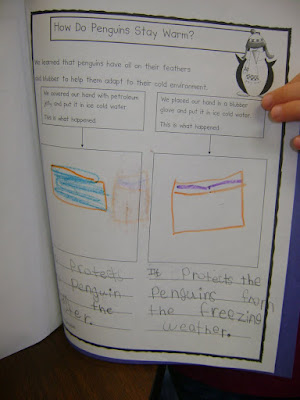 How Do Penguins Stay Warm?
We learned that penguins have oil on their feathers
and blubber to help them adapt to their cold environment.
We covered our hand with petroleum
jelly and put it in ice cold water.
This is what happened.
We placed our hand in a blubber
glove and put it in ice cold water.
This is what happened.
protects
Penguin
the
ter.
It Protects the
Penguins from
the freezing
weather.